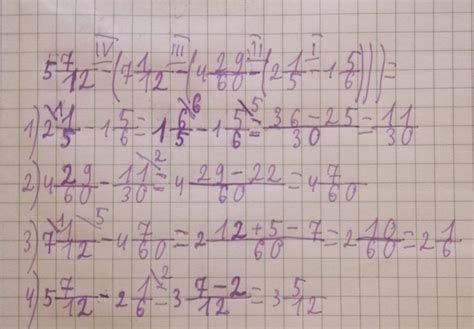 IV III II I
5 7/12 - (7 1/12 - (4 29/60 - (2 1/5 - 1 5/6))) =
1) 2 1/5 - 1 5/6 = 1 6/5 - 1 5/6 = 36-25/30 = 11/30
2) 4 29/60 - 11/30 = 4 29-22/60 = 4 7/60
3) 7 1/12 - 4 7/60 = 2 12+5-7/60 = 2 10/60 = 2 1/6
4) 5 7/12 - 2 1/6 = 3 7-2/12 = 3 5/12